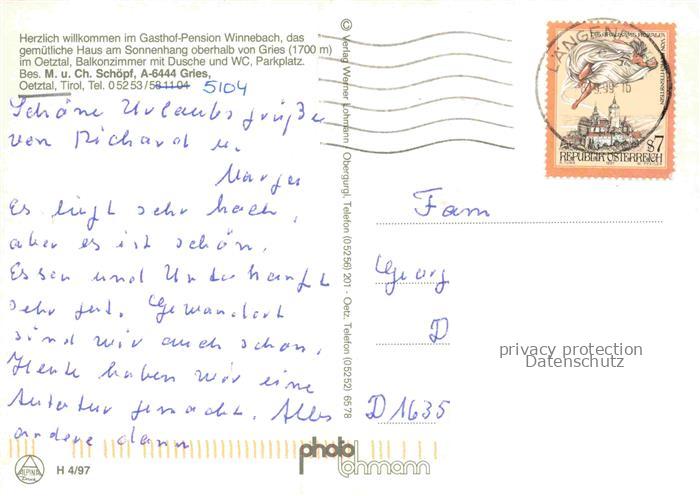 Herzlich willkommen im Gasthof-Pension Winnebach, das
gemütliche Haus am Sonnenhang oberhalb von Gries (1700 m)
im Oetztal, Balkonzimmer mit Dusche und WC, Parkplatz.
Bes. M. u. Ch. Schöpf, A-6444 Gries,
Oetztal, Tirol, Tel. 05253/581104 5104
Schöne Urlaubsgrüße
von Richard u.
Es liegt sehr hoch,
aber es ist schön.
Essen und Unterkunft
sehr gut. Gewandert
sind wir auch schon.
Heute haben wir eine
Autotur gemacht. Alles
andere dann
H 4/97
© Verlag Werner Lohmann · Obergurgl, Telefon (05256) 201 - Oetz, Telefon (05252) 6578
photo
lohmann
ALPINA
LÄNGENFELD
s7
REPUBLIK ÖSTERREICH
Fam
Georg
D
privacy protection
Datenschutz
D 1635